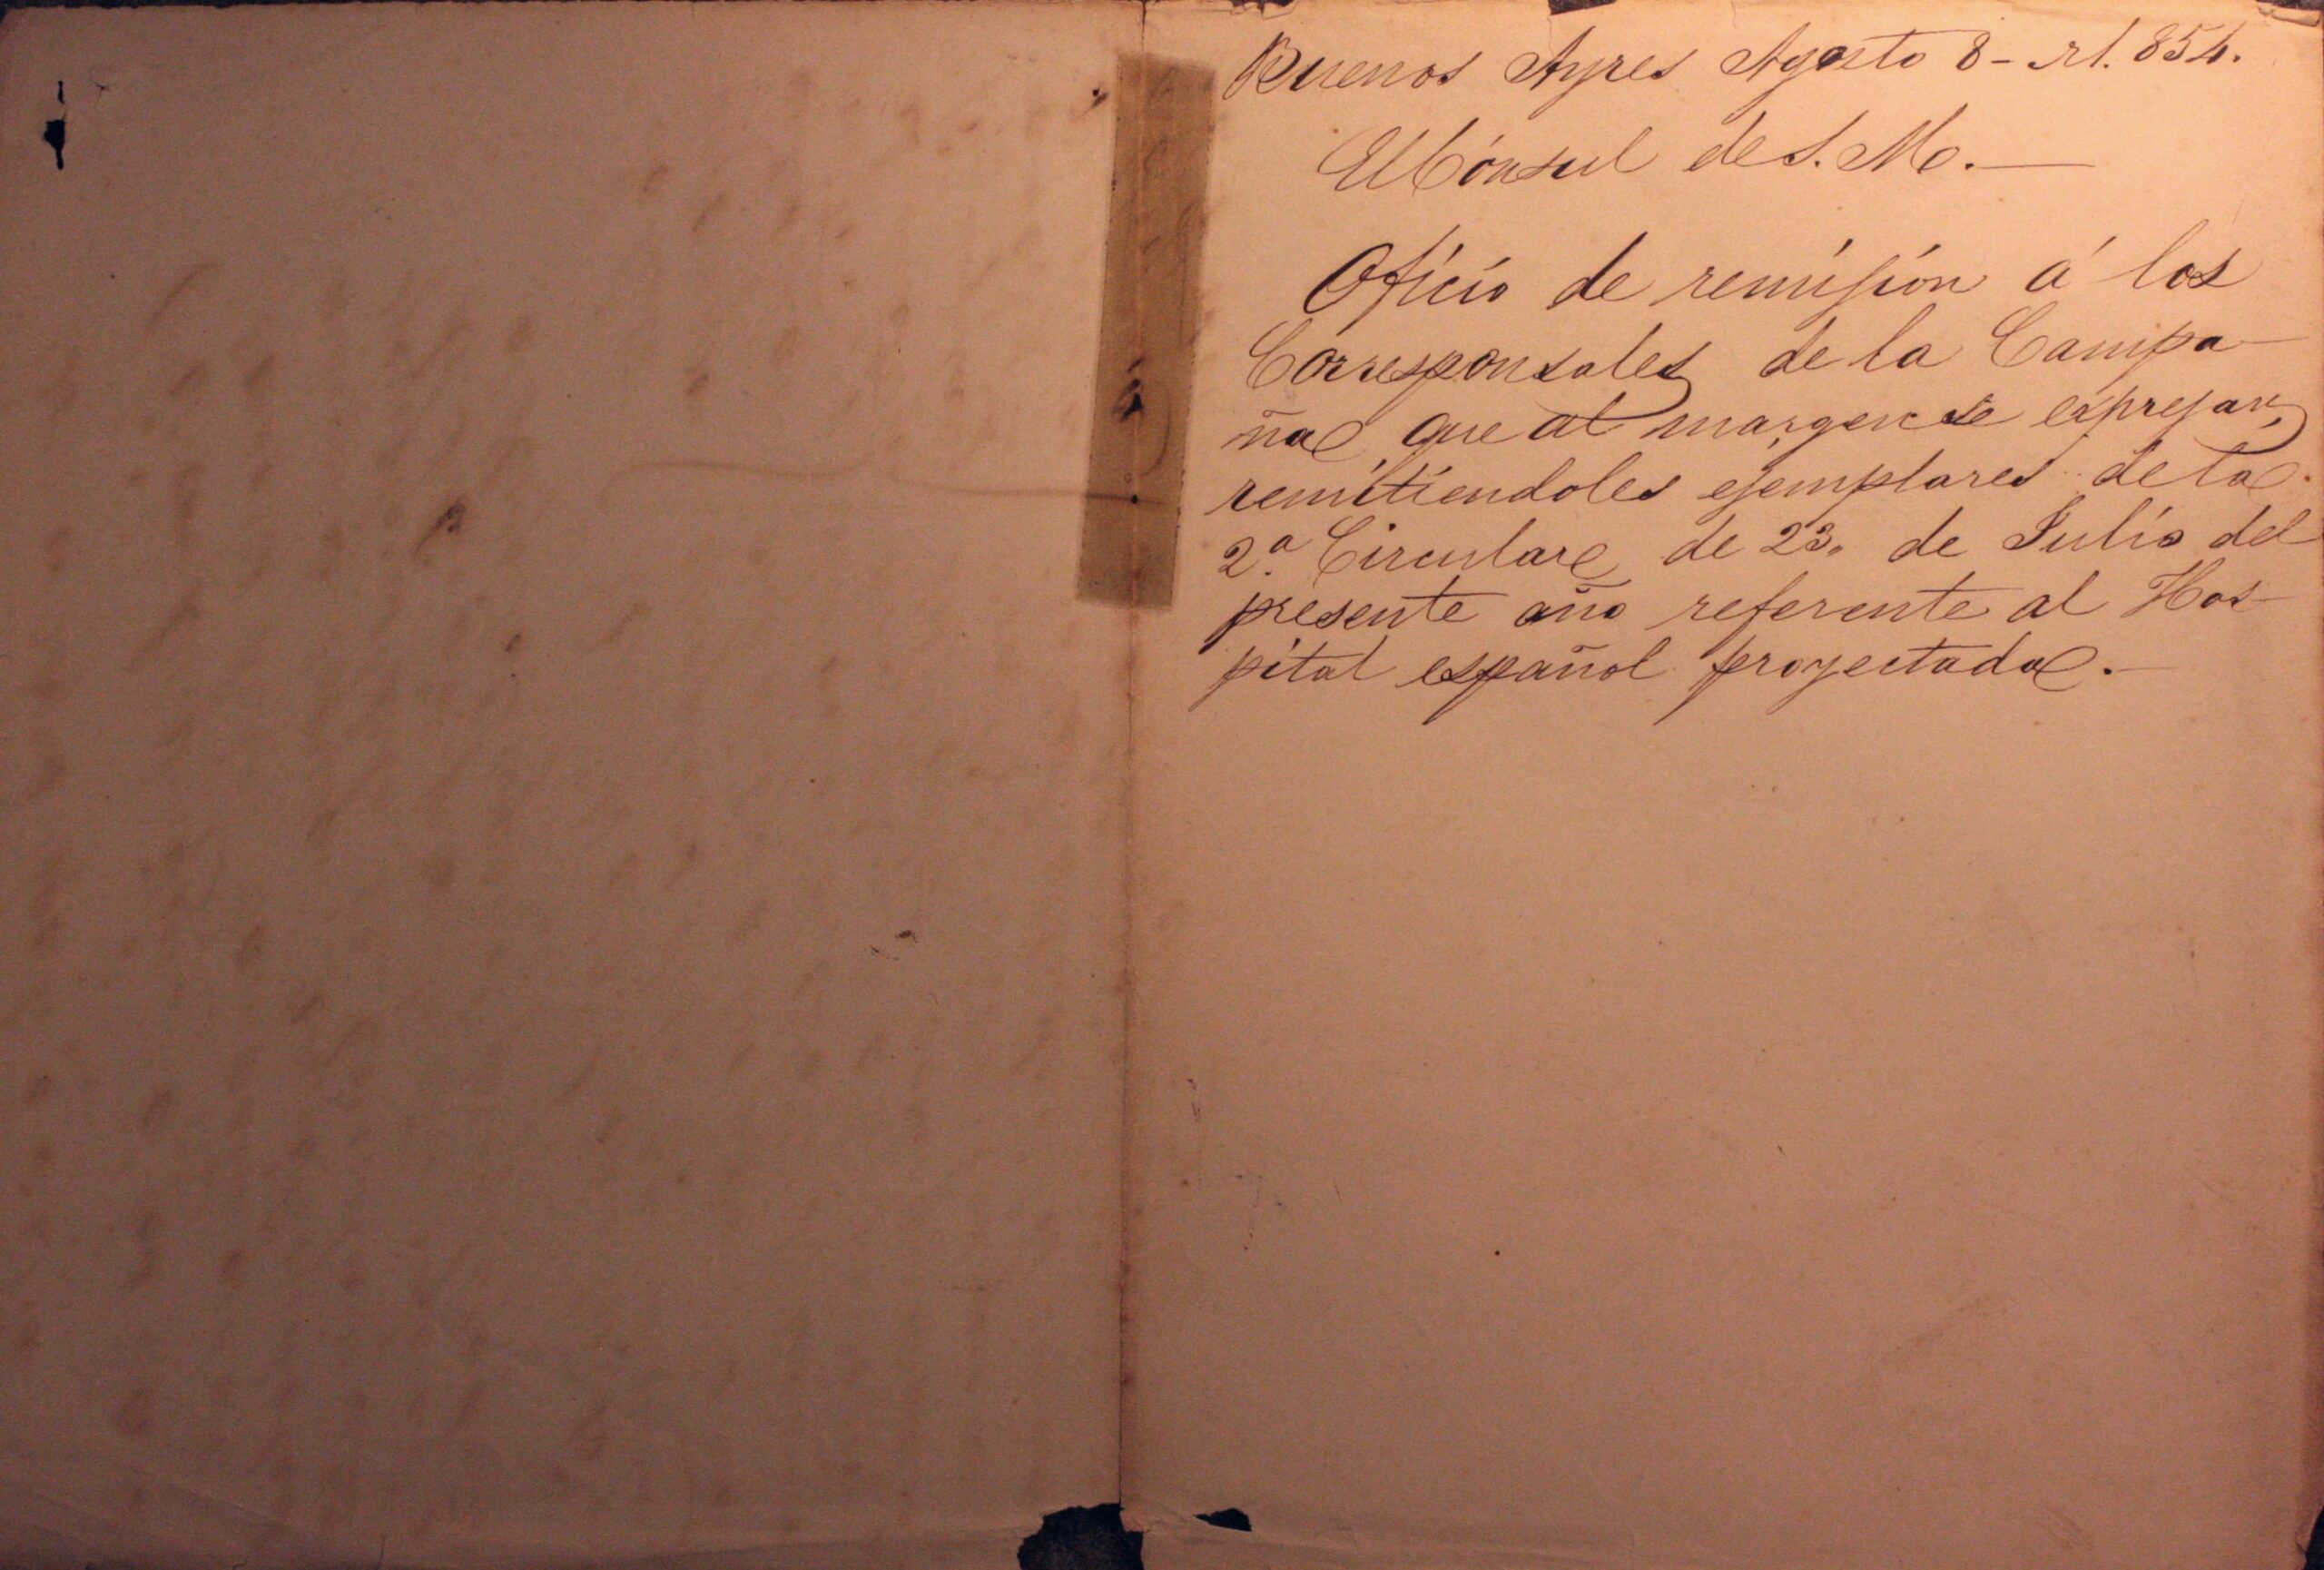 Buenos Ayres Agosto 8 - 1854.
El Cónsul de S. M. —
Oficio de remision á los
Corresponsales de la Campa-
ña que al margen se expresan,
remitiendoles ejemplares de la
2.ª Circular de 23 de Julio del
presente año referente al Hos-
pital español proyectado. —